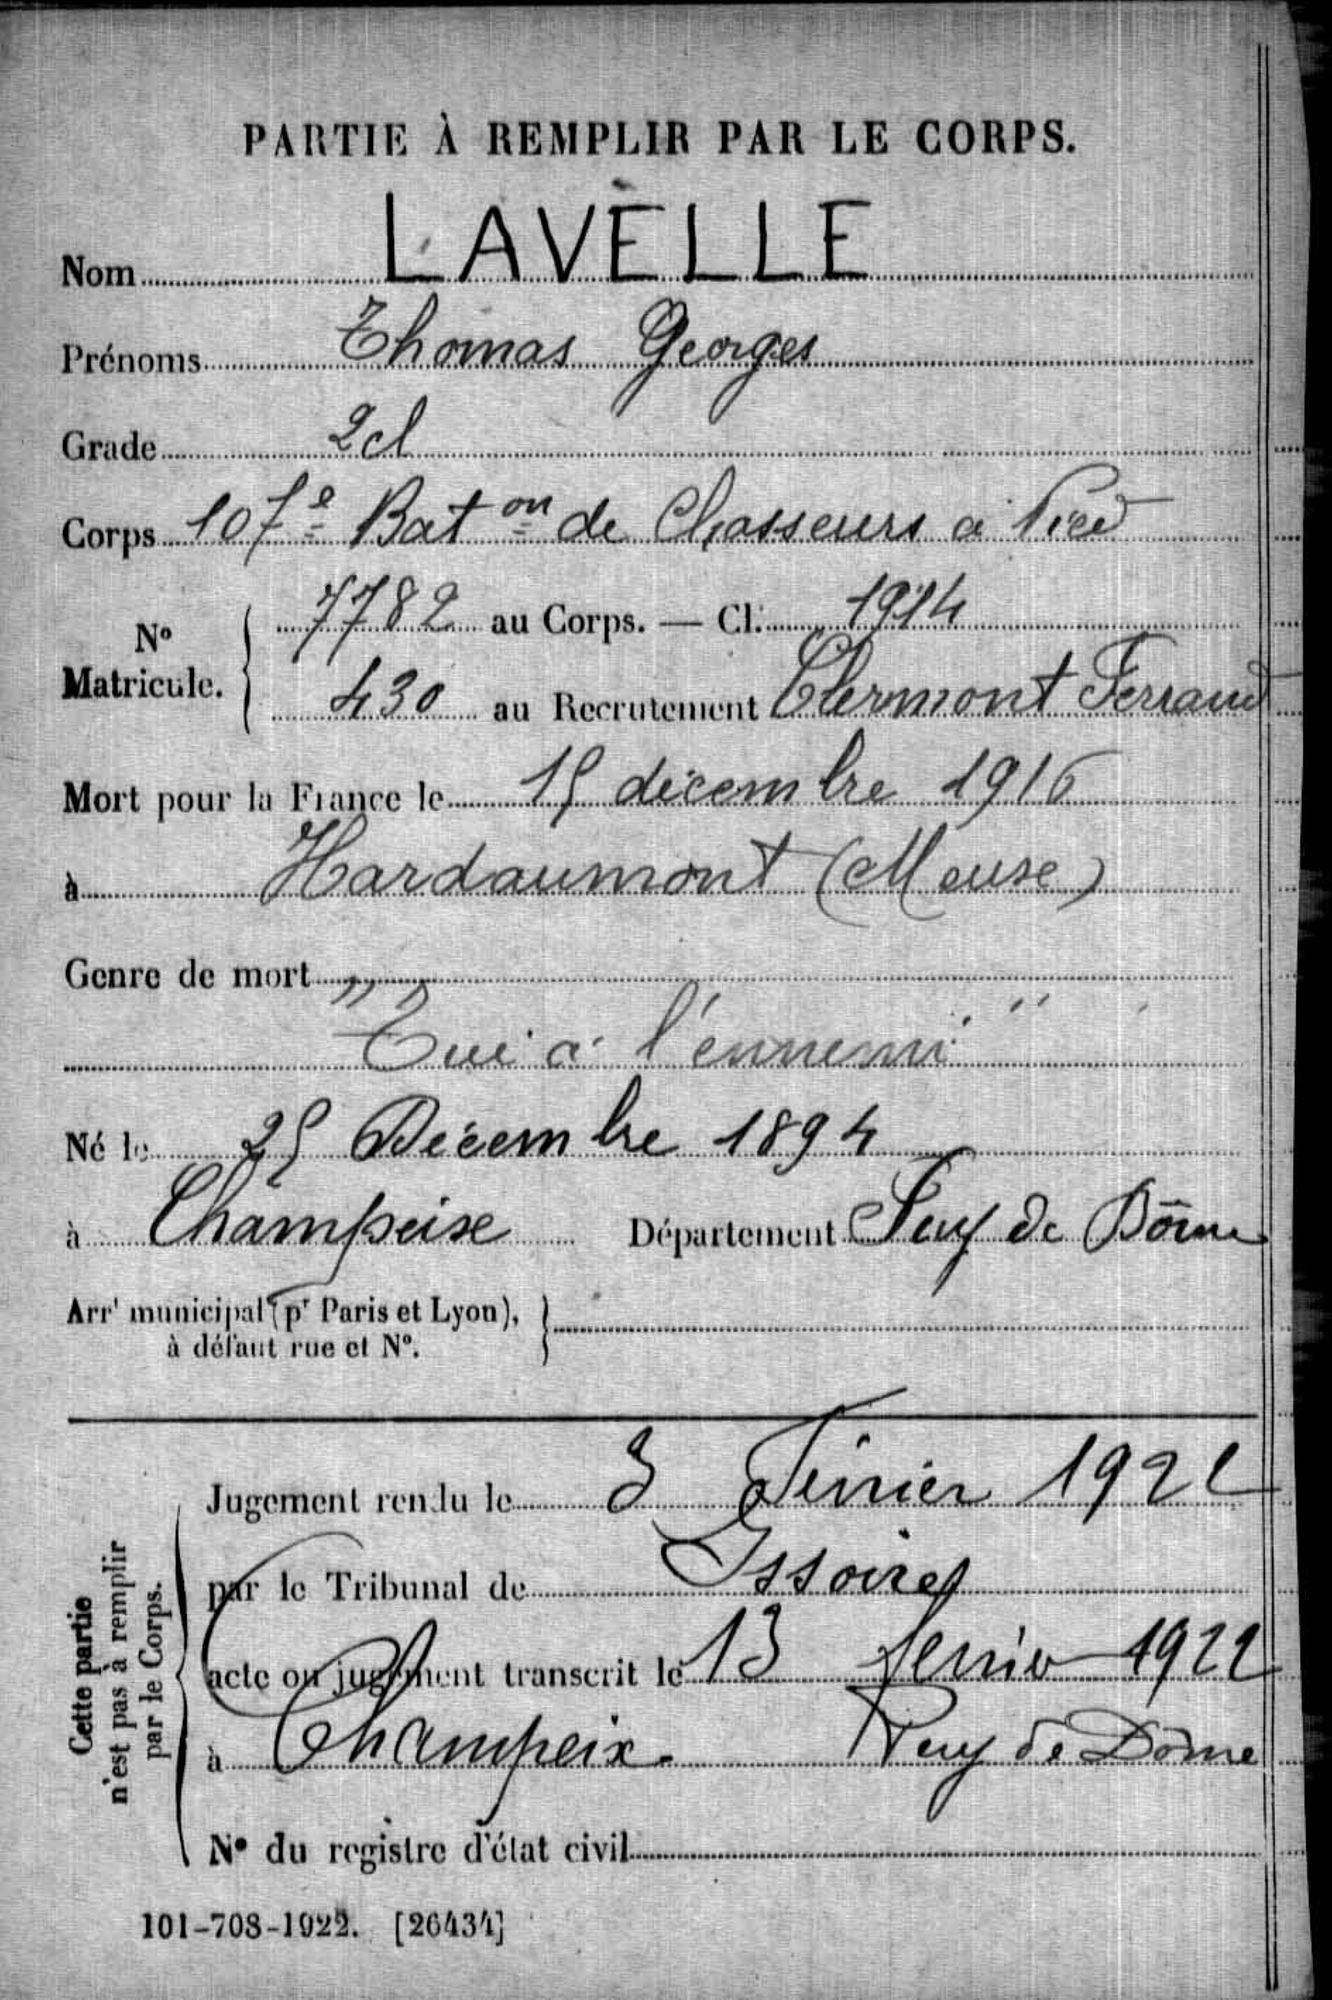 PARTIE À REMPLIR PAR LE CORPS.
Nom LAVELLE
Prénoms Thomas Georges
Grade 2cl
Corps 107e Baton de Chasseurs à Pied
No Matricule. 7782 au Corps. — Cl. 1914
430 au Recrutement Clermont Ferrand
Mort pour la France le 15 décembre 1916
à Hardaumont (Meuse)
Genre de mort
"Tué à l'ennemi"
Né le 25 Décembre 1894
à Champeise Département Puy de Dôme
Arrt municipal (pr Paris et Lyon),
à défaut rue et No.
Jugement rendu le 3 Février 1922
par le Tribunal de Issoire
acte ou jugement transcrit le 13 février 1922
à Champeix. Puy de Dôme
No du registre d'état civil
Cette partie
n'est pas à remplir
par le Corps.
101-708-1922. [26434]